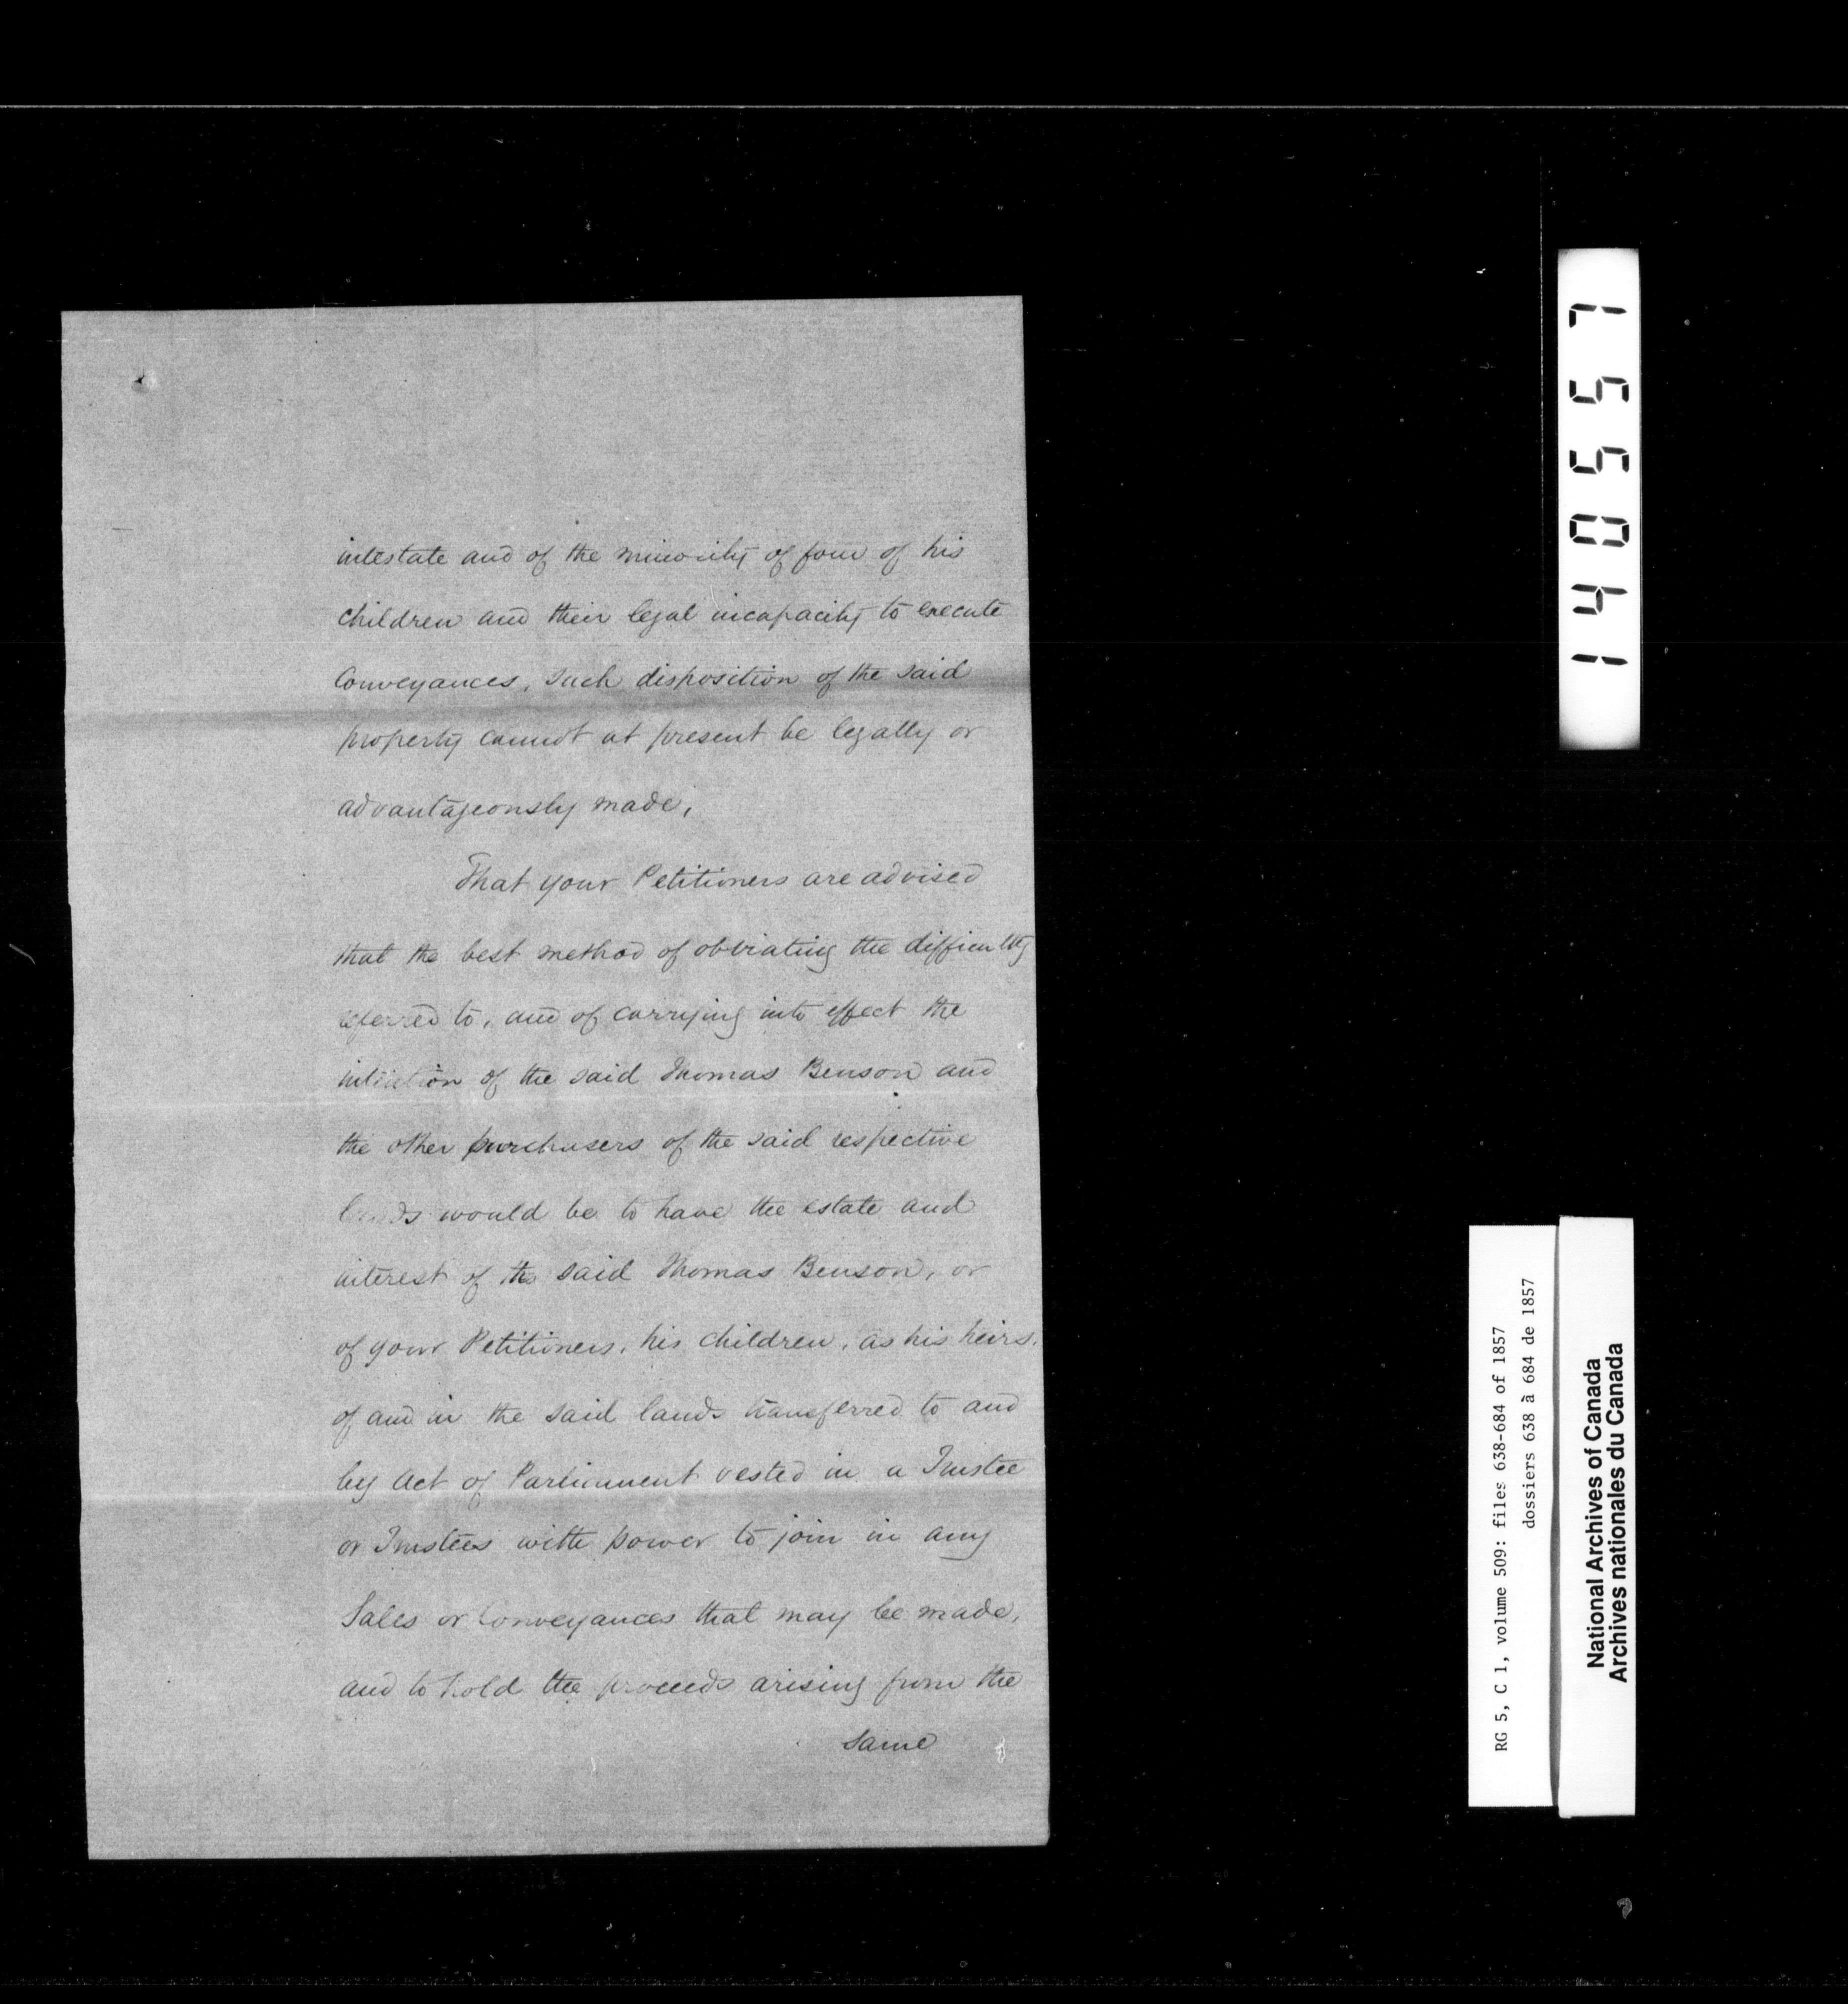 intestate and of the minority of four of his
children and their legal incapacity to execute
Conveyances, such disposition of the said
property cannot at present be legally or
advantageously made,
That your Petitioners are advised
that the best method of obviating the difficulty
referred to, and of carrying into effect the
intention of the said Thomas Benson and
the other purchasers of the said respective
lands would be to have the estate and
interest of the said Thomas Benson, or
of your Petitioners, his children, as his heirs,
of and in the said lands transferred to and
by Act of Parliament vested in a Trustee
or Trustees with power to join in any
Sales or Conveyances that may be made,
and to hold the proceeds arising from the
same
140557
RG 5, C 1, volume 509: files 638-684 of 1857
dossiers 638 à 684 de 1857
National Archives of Canada
Archives nationales du Canada